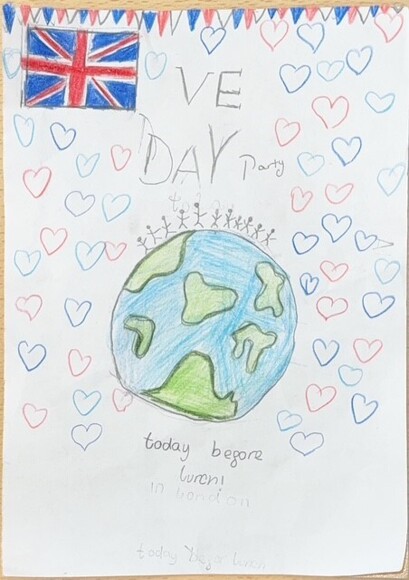 VE
DAY Party
today
today before
lunch!
in London
today before lunch